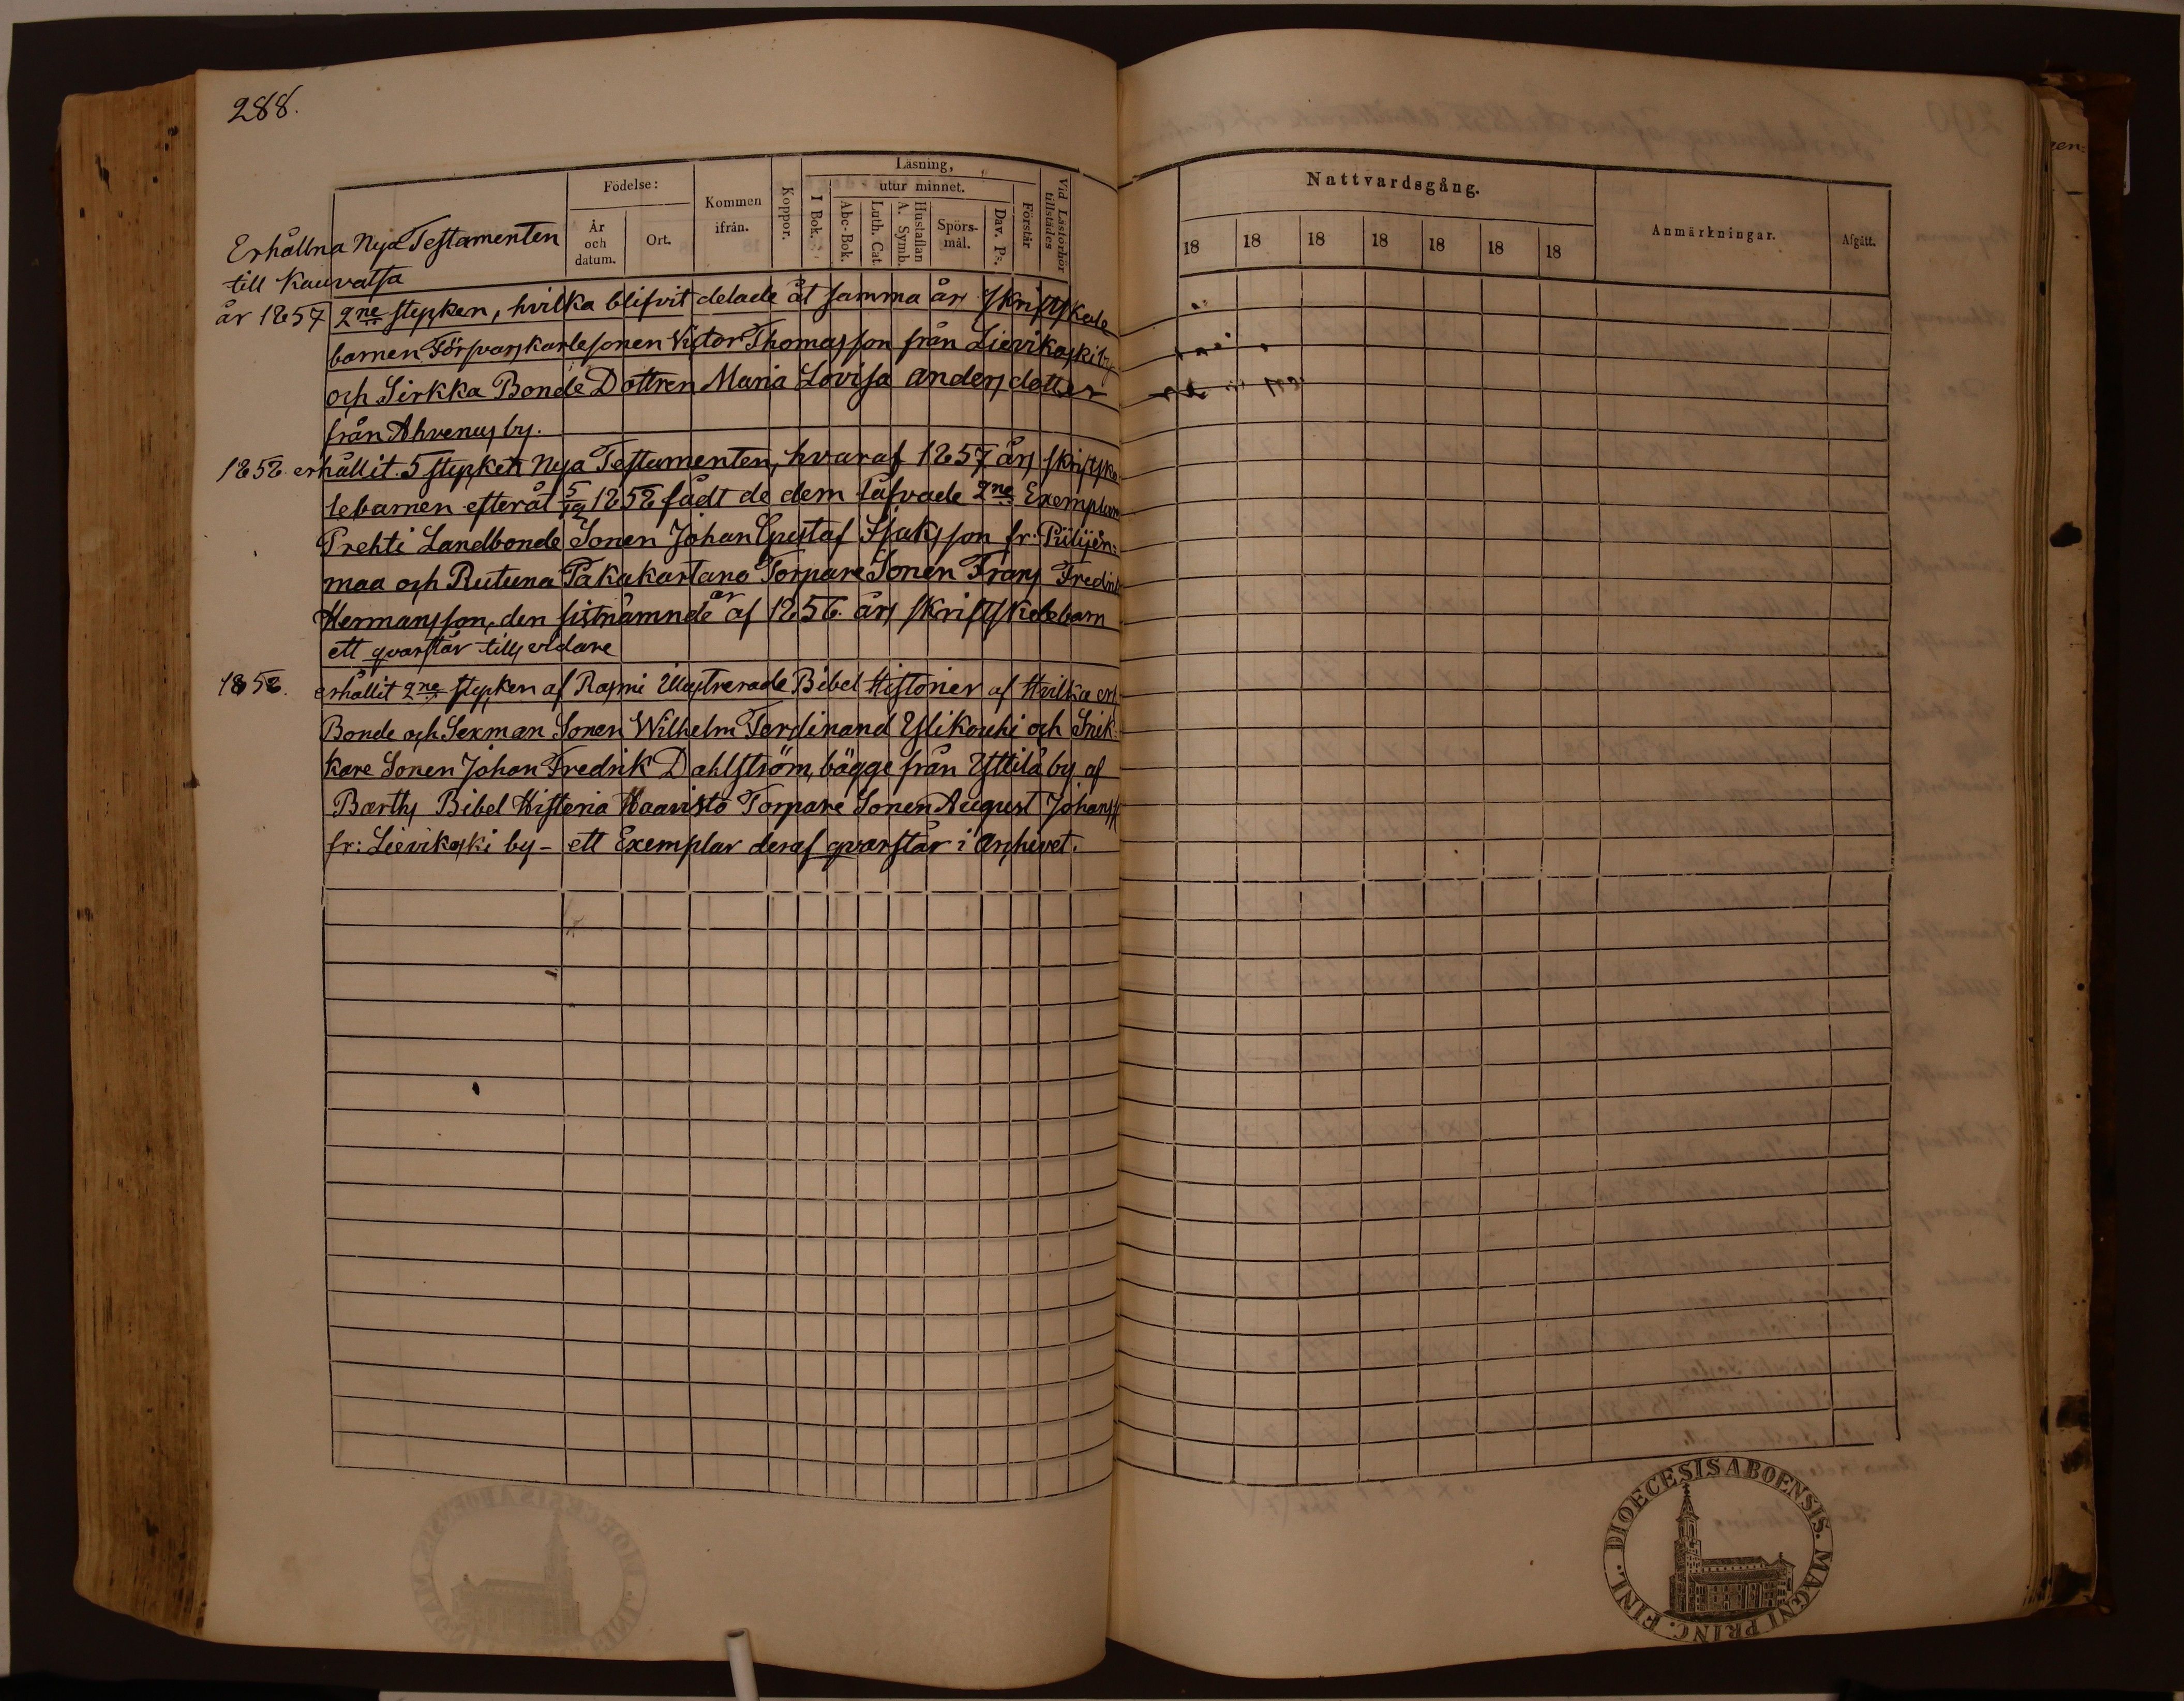 288.
Läsning,
Födelse:
Kommen ifrån.
Koppor.
I Bok.
utur minnet.
Abc-Bok.
Luth. Cat.
Hustaflan A. Symb.
Spörs-mål.
Dav. Ps.
Förstår
Vid Läsförhör tillstädes
År och datum.
Ort.
Nattvardsgång.
Anmärkningar.
Afgått.
18 18 18 18 18 18 18
Erhållna Nya Testamenten
till Kauvatsa
år 1857 2ne stycken, hvilka blifvit delade åt samma års skriftskole
barnen Försvarskarlesonen Victor Thomasson från Lievikoski by
och Sirkka Bonde Dottren Maria Lovisa Andersdotter
från Ahvenus by.
1858. erhållit 5 stycken Nya Testamenten, hvaraf 1857 års skriftsko-
lebarnen efteråt 5/12 1858 fådt de dem låfvade 2ne Exemplaren
Prehti Landbonde Sonen Johan Gustaf Isaksson fr. Piilijen-
maa och Rutuna Takakartano Torpare Sonen Frans Fredrik
Hermansson, den sistnämnde är af 1856 års skriftskolebarn
ett qvarstår tills vidare
1858. erhållit 2ne stycken af Illustrerade Bibel Historier af Hvilka
Bonde och Sexman Sonen Wilhelm Ferdinand Ylikouhi och Snik-
kare Sonen Johan Fredrik Dahlström, bägge från Yttilä by af
Barths Bibel Historia Haavisto Torpare Sonen August Johanss
fr: Lievikoski by – ett Exemplar deraf qvarstår i Archivet.
DIOECESIS ABOENSIS. MAGNI PRINC. FINL.